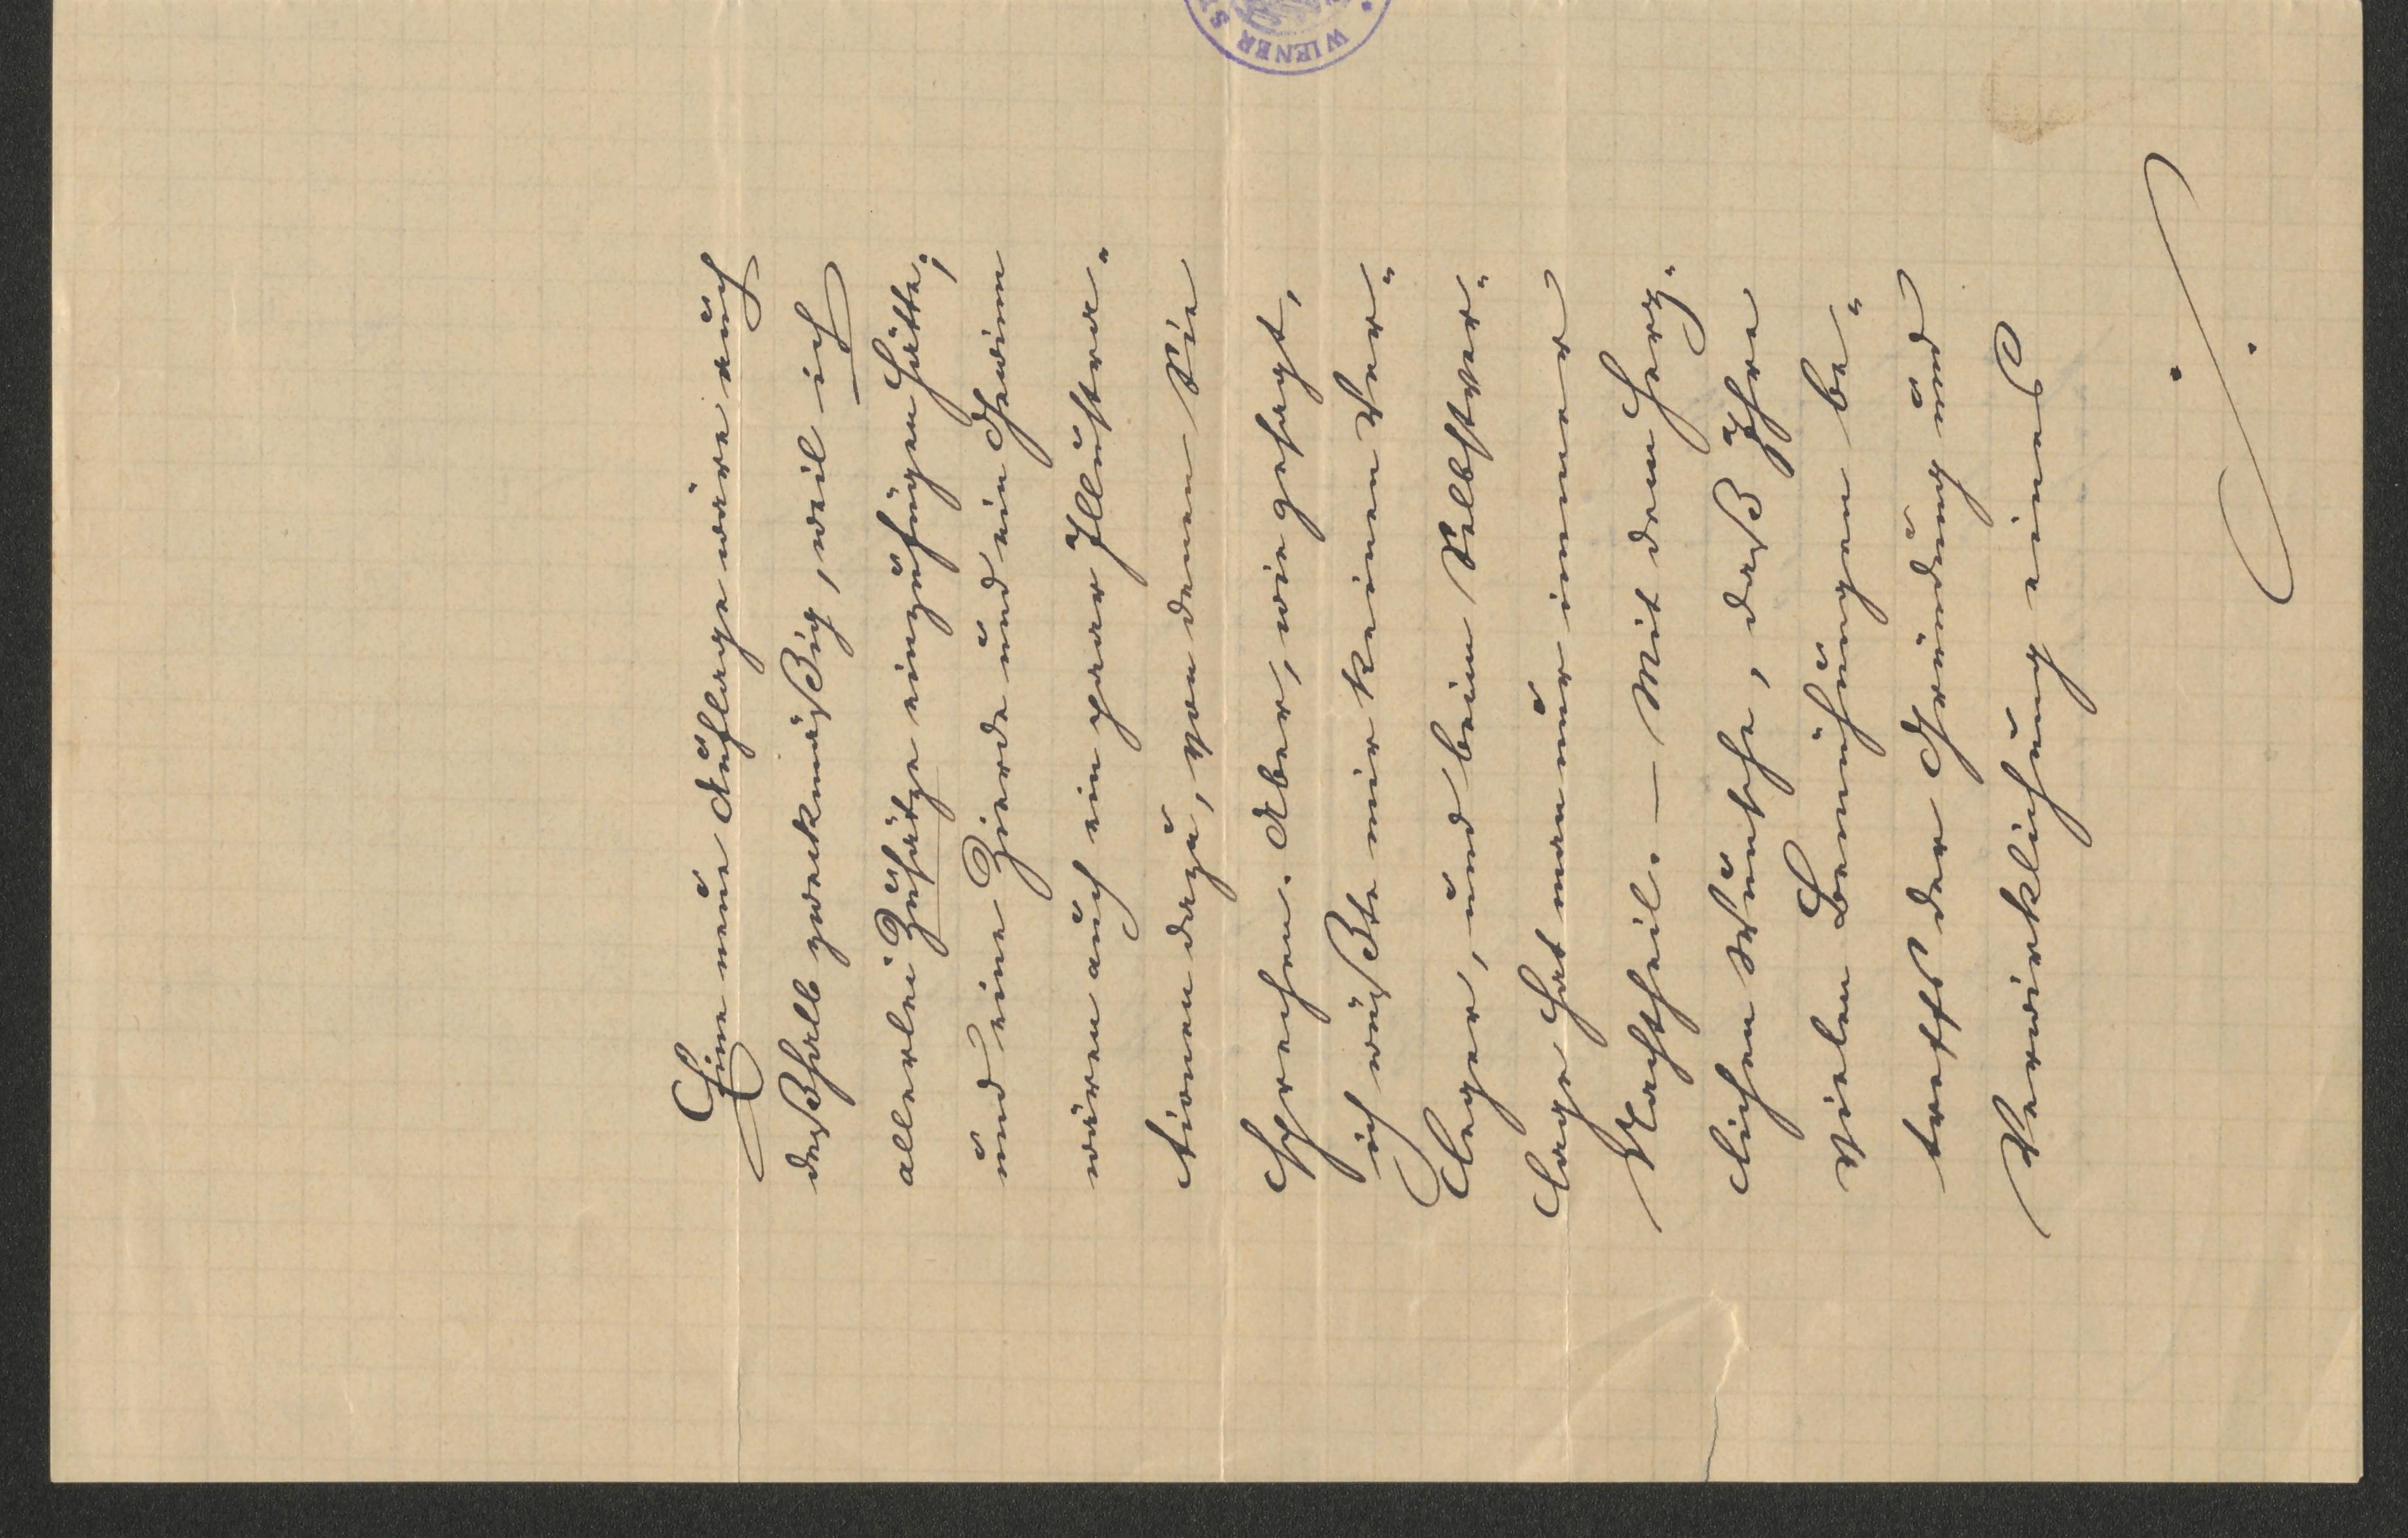 Eine neue Auflage wäre auch
deßhalb zweckmäßig, weil ich
allerlei Zusätze einzufügen hätte;
und eine Zierde und ein Gewinn
wären auch ein paar Illustra-
tionen dazu, von denen Sie
sprechen. Aber, wie gesagt,
ich wüßte mir keinen Ver-
leger, und beim Selbstver-
lage hat man nur immer
Nachtheil. – Mit dem herz-
lichen Wunsche, daß Ihre
vielen Bemühungen be-
treffs der Gründung und
Verwirklichung eines
./.
WIENER